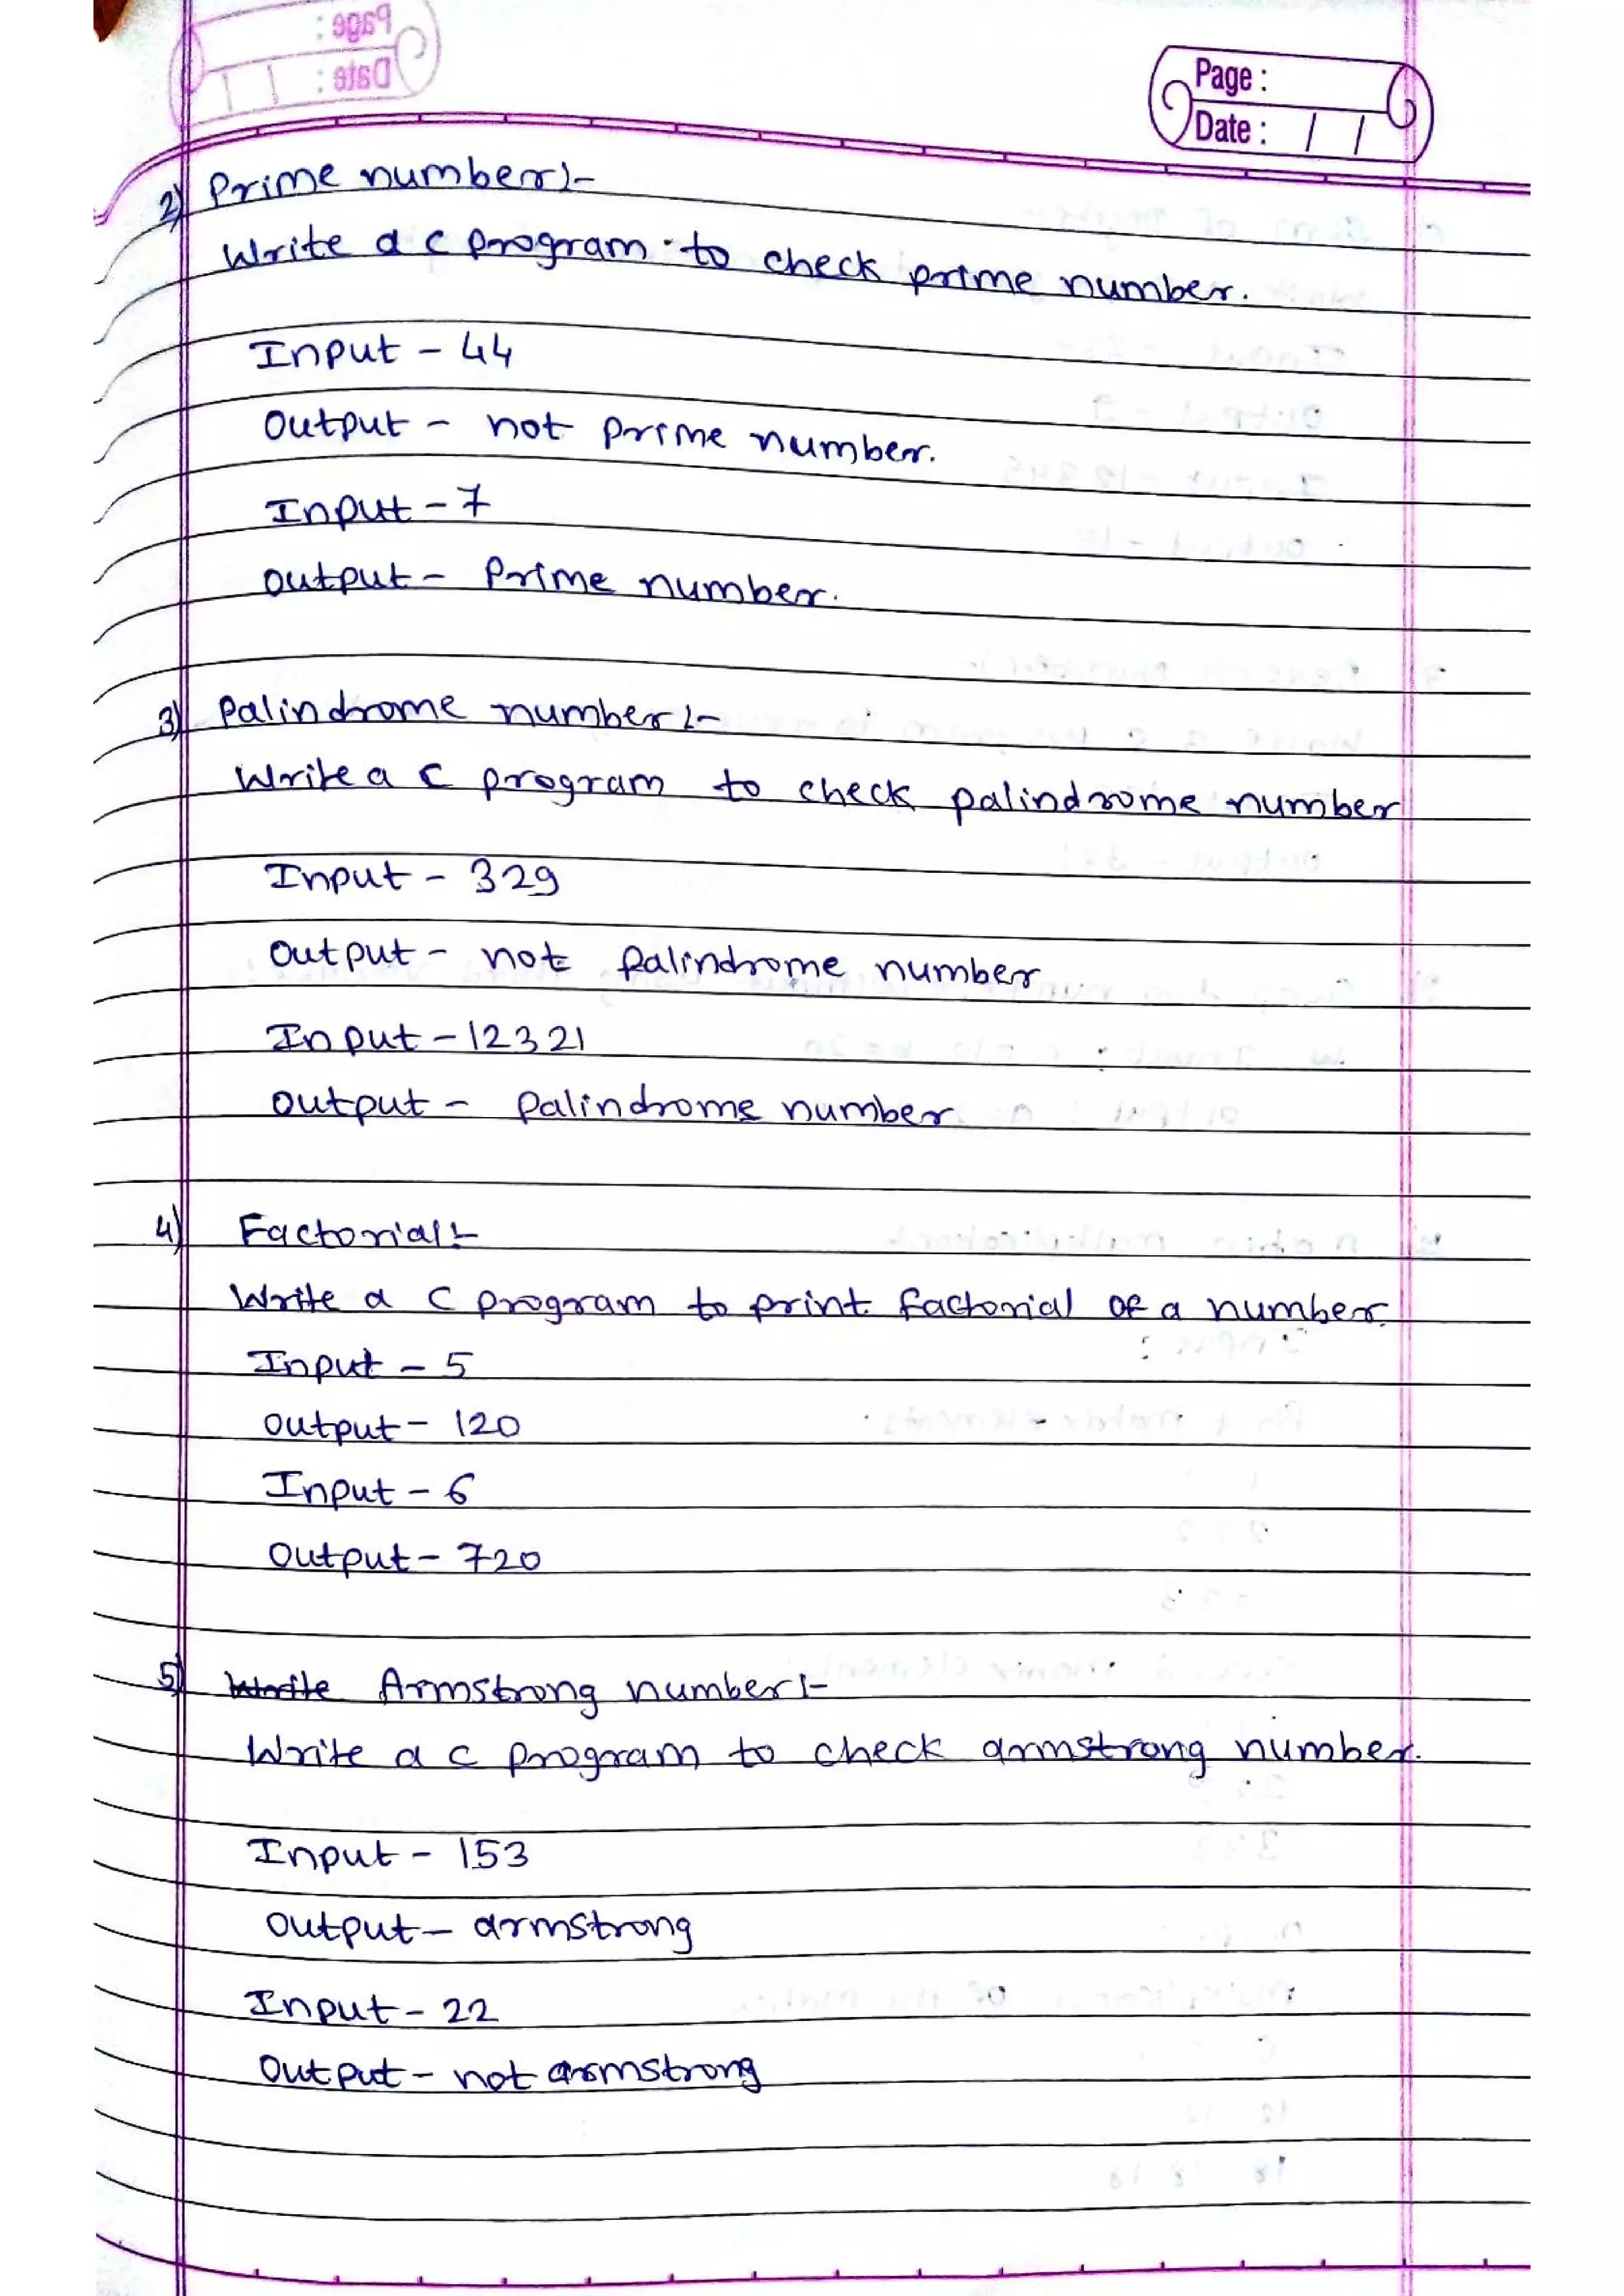 Page :
Date : / /
2) Prime number:-
Write a c program to check prime number.
Input - 44
Output - not prime number.
Input - 7
output - Prime number.
3) Palindrome number:-
Write a c program to check palindrome number
Input - 329
Output - not Palindrome number
Input - 12321
output - Palindrome number
4) Factorial:-
Write a C program to print factorial of a number.
Input - 5
output - 120
Input - 6
Output - 720
5) Write Armstrong number:-
Write a c program to check armstrong number.
Input - 153
Output - armstrong
Input - 22
Output - not armstrong